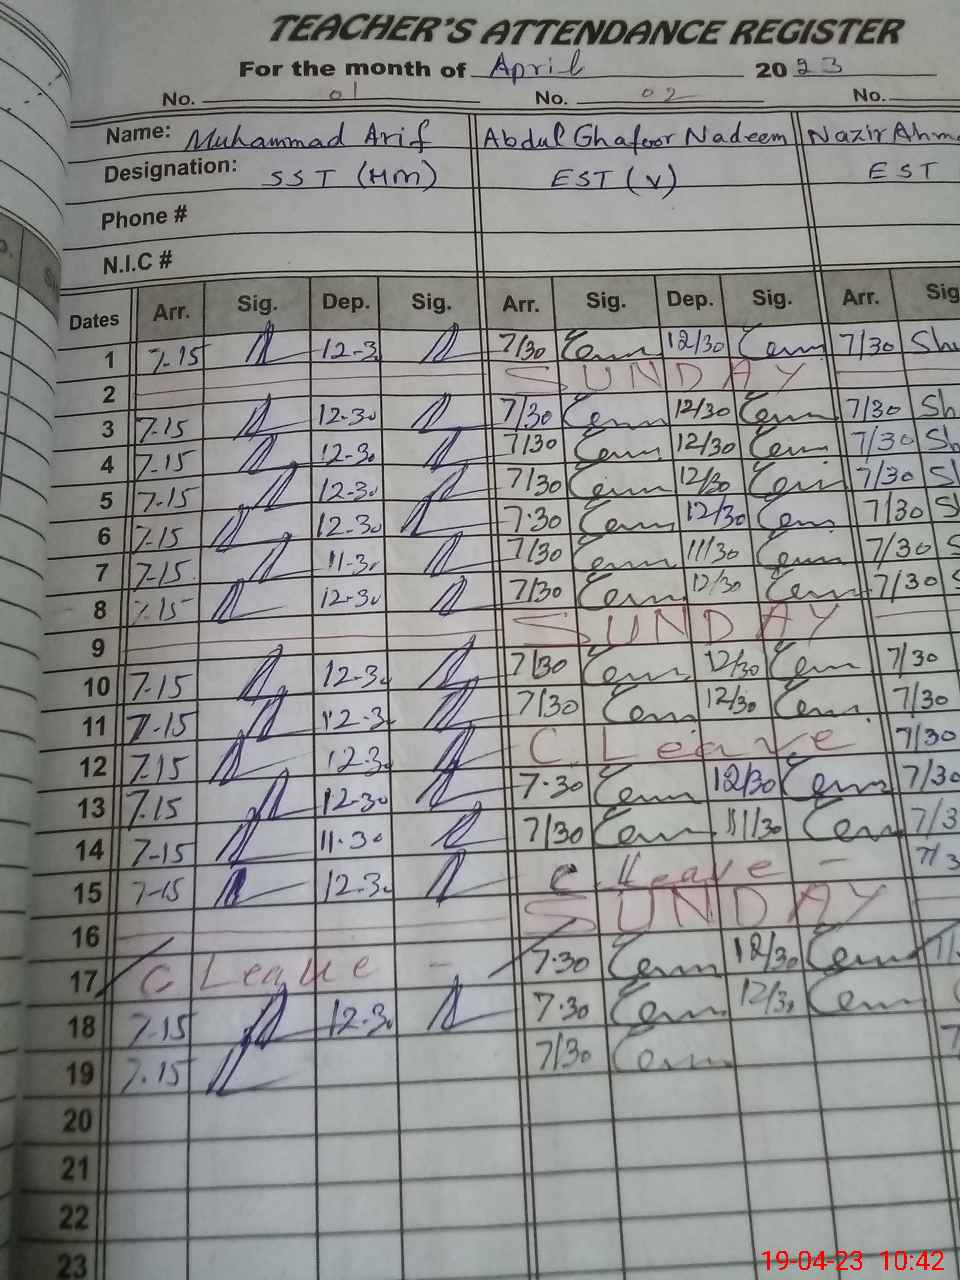 TEACHER'S ATTENDANCE REGISTER
For the month of April 2023
No. 01 No. 02 No.
Name: Muhammad Arif Abdul Ghafoor Nadeem Nazir Ahm
Designation: SST (HM) EST (V) EST
Phone #
N.I.C #
Dates Arr. Sig. Dep. Sig. Arr. Sig. Dep. Sig. Arr. Sig
1 7-15 12-3 7/30 12/30 7/30
2 SUNDAY
3 7-15 12-30 7/30 12/30 7/30
4 7-15 12-30 7/30 12/30 7/30
5 7-15 12-30 7/30 12/30 7/30
6 7-15 12-30 7.30 12/30 7/30
7 7-15 11-30 7/30 11/30 7/30
8 7-15 12-30 7/30 12/30 7/30
9 SUNDAY
10 7-15 12-30 7/30 12/30 7/30
11 7-15 12-30 7/30 12/30 7/30
12 7-15 12-30 C. Leave 7/30
13 7-15 12-30 7.30 12/30 7/30
14 7-15 11-30 7/30 11/30 7/3
15 7-15 12-30 C. Leave - 7/3
16 SUNDAY
17 C Leave - 7.30 12/30
18 7-15 12-30 7.30 12/30
19 7-15 7/30 7
20
21
22
23
19-04-23 10:42